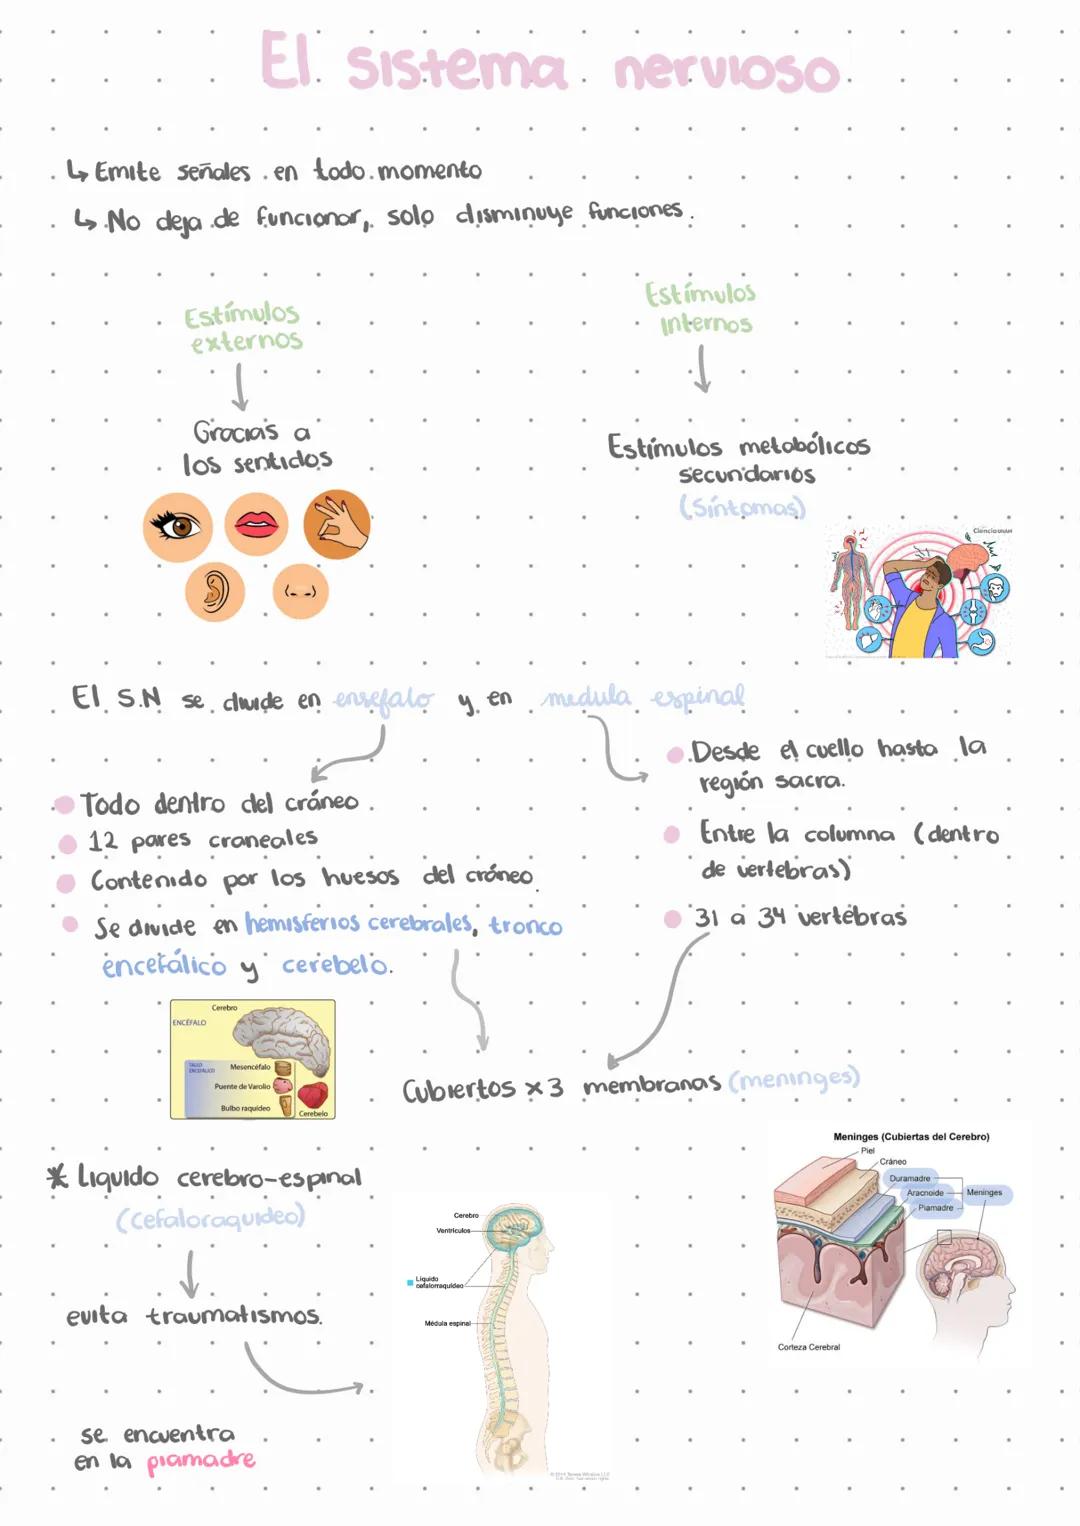 El sistema nervioso
↳ Emite señales en todo momento
↳ No deja de funcionar, solo disminuye funciones.
Estímulos
externos
Gracias a
los sentidos
Estímulos
Internos
Estímulos metabólicos
secundarios
(Síntomas)
Ciencia UNAM
El S.N se divide en ensefalo y en medula espinal
Todo dentro del cráneo
12 pares craneales
Contenido por los huesos del cráneo
Se divide en hemisferios cerebrales, tronco
encefálico y cerebelo.
Desde el cuello hasta la
región sacra.
Entre la columna (dentro
de vertebras)
31 a 34 vertebras
Cerebro
ENCÉFALO
TALLO
ENCEFÁLICO
Mesencéfalo
Puente de Varolio
Bulbo raquídeo
Cerebelo
Cubiertos x3 membranas (meninges)
* Liquido cerebro-espinal
(Cefaloraquideo)
evita traumatismos.
se encuentra
en la piamadre
Cerebro
Ventrículos
Líquido
cefalorraquídeo
Médula espinal
Meninges (Cubiertas del Cerebro)
Piel
Cráneo
Duramadre
Aracnoide
Piamadre
Meninges
Corteza Cerebral